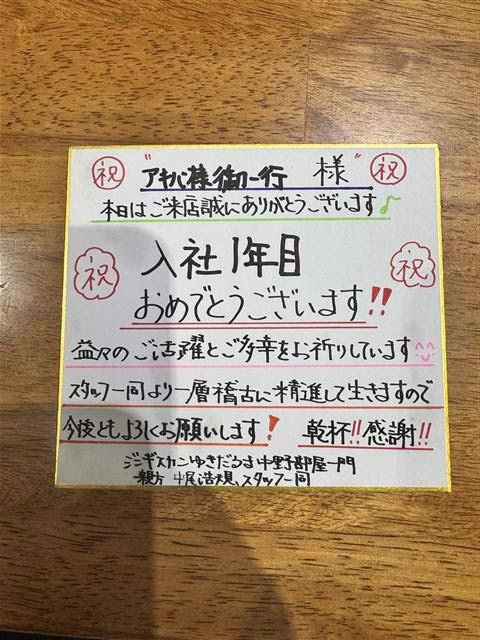 祝 "アキバ様御一行 様" 祝
本日はご来店誠にありがとうございます♪
祝 入社1年目 祝
おめでとうございます!!
益々のご活躍とご多幸をお祈りしています^^
スタッフ一同より一層稽古に精進して生きますので
今後ともよろしくお願いします! 乾杯!!感謝!!
ジンギスカンゆきだるま中野部屋一門
親方 中尾浩規、スタッフ一同